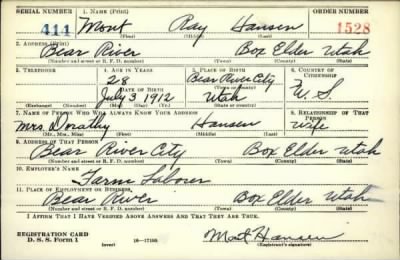 SERIAL NUMBER 1. NAME (Print) ORDER NUMBER
414 Mont Ray Hansen 1528
(First) (Middle) (Last)
2. ADDRESS (Print)
Bear River Box Elder Utah
(Number and street or R. F. D. number) (Town) (County) (State)
3. TELEPHONE 4. AGE IN YEARS 5. PLACE OF BIRTH 6. COUNTRY OF CITIZENSHIP
28 Bear River City
(Town or county)
DATE OF BIRTH
July 3 1912 Utah U.S.
(Exchange) (Number) (Mo.) (Day) (Yr.) (State or country)
7. NAME OF PERSON WHO WILL ALWAYS KNOW YOUR ADDRESS 8. RELATIONSHIP OF THAT PERSON
Mrs Dorathy Hansen Wife
(Mr., Mrs., Miss) (First) (Middle) (Last)
9. ADDRESS OF THAT PERSON
Bear River City Box Elder Utah
(Number and street or R. F. D. number) (Town) (County) (State)
10. EMPLOYER'S NAME
Farm Laborer
11. PLACE OF EMPLOYMENT OR BUSINESS
Bear River Box Elder Utah
(Number and street or R. F. D. number) (Town) (County) (State)
I AFFIRM THAT I HAVE VERIFIED ABOVE ANSWERS AND THAT THEY ARE TRUE.
REGISTRATION CARD
D. S. S. Form 1 (over) 16—17105 Mont Hansen
(Registrant's signature)